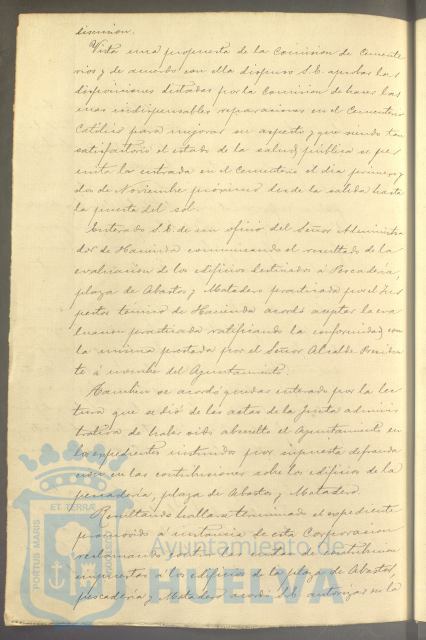 sunion.
Vista una propuesta de la Comision de Cemente
rios y de acuerdo con ella dispuso S.E. aprobar las
disposiciones dictadas por la Comision de hacer las
mas indispensables reparaciones en el Cementerio
Católico para mejorar su aspecto y que siendo tan
satisfactorio el estado de la salud pública se per
mita la entrada en el Cementerio el dia primero y
dos de Noviembre próximo desde la salida hasta
la puesta del sol.
Enterado S.E. de un oficio del Señor Administra
dor de Hacienda comunicando el resultado de la
evaluacion de los edificios destinados á Pescaderia,
plaza de Abastos y Matadero practicada por el Ins
pector técnico de Hacienda acordó aceptar la eva
luacion practicada ratificando la conformidad con
la misma prestada por el Señor Alcalde Presiden
te á nombre del Ayuntamiento.
Tambien se acordó quedar enterado por la lec
tura que se dió de las actas de la Junta adminis
trativa de haber sido absuelto el Ayuntamiento en
los expedientes instruidos por supuesta defrauda
cion en las contribuciones sobre los edificios de la
pescaderia, plaza de Abastos y Matadero.
Resultando hallarse terminado el expediente
promovido á instancia de esta Corporacion
reclamando contribucion
impuestas á los edificios de la plaza de Abastos,
pescaderia y Matadero acordó S.E. autorizar en la
PORTUS MARIS ET TERRÆ CUSTODIA
Ayuntamiento de
HUELVA